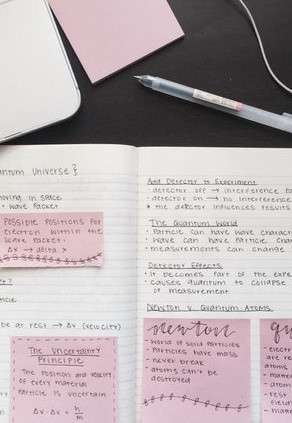 antum Universe}
oving in space
wave packet
Possible positions for
electron within the
wave packet.
Δx → delta x
be at rest → Δv (velocity)
The Uncertainty
Principle
The position and velocity
of every material
particle is uncertain
Δx · Δv = h/m
Add Detector to Experiment
· detector off → interference
· detector on → no interference
· the detector influences results
The Quantum World
· Particle can have wave charact
· Wave can have particle chara
· measurements can change
Detector Effects
· It becomes part of the expe
· causes quantum to collapse
of measurement
Newton v. Quantum Atoms
newton
· World of solid particles
· Particles have mass
· never break
· atoms can't be
destroyed
qu
are re
atoms
matter
atom
rest
field
mat